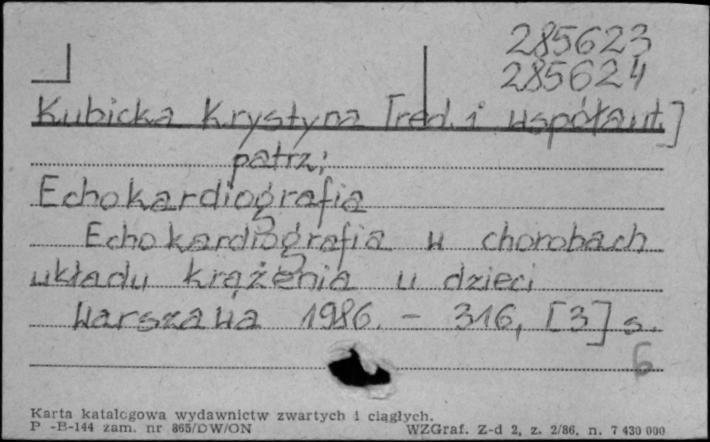 285623
285624
Kubicka Krystyna [red. i współaut.]
patrz:
Echokardiografia
Echokardiografia w chorobach
układu krążenia u dzieci
Warszawa 1986. - 316, [3] s.
6
Karta katalogowa wydawnictw zwartych i ciągłych.
P -B-144 zam. nr 865/DW/ON WZGraf. Z-d 2, z. 2/86, n. 7 430 000